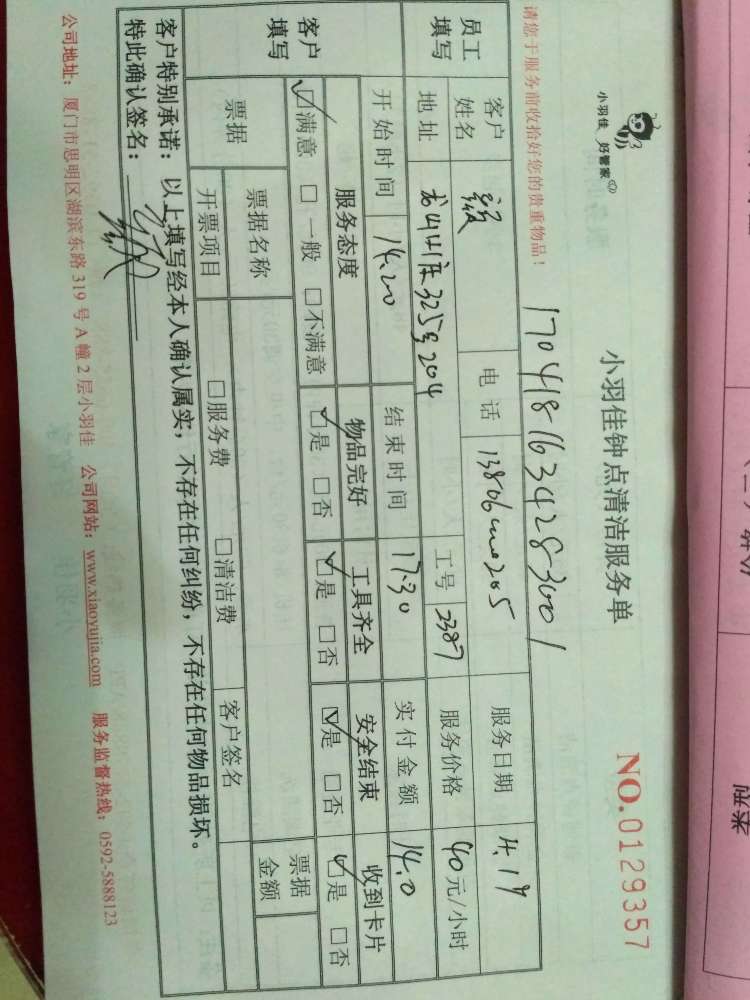 小羽佳 好管家
小羽佳钟点清洁服务单
NO.0129357
请您于服务前收拾好您的贵重物品！
1704181634283001
员工填写
客户姓名
电话
服务日期 4.19
地址
325号204
工号 2387
服务价格 40元/小时
开始时间 14.20
结束时间 17.30
实付金额 140
客户填写
服务态度 物品完好 工具齐全 安全结束 收到卡片
☑满意 □一般 □不满意 ☑是 □否 ☑是 □否 ☑是 □否 ☑是 □否
票据
票据名称
客户签名
票据金额
开票项目 □服务费 □清洁费
客户特别承诺：以上填写经本人确认属实，不存在任何纠纷，不存在任何物品损坏。
特此确认签名：
公司地址：厦门市思明区湖滨东路319号A幢2层小羽佳 公司网站：www.xiaoyujia.com 服务监督热线：0592-5888123